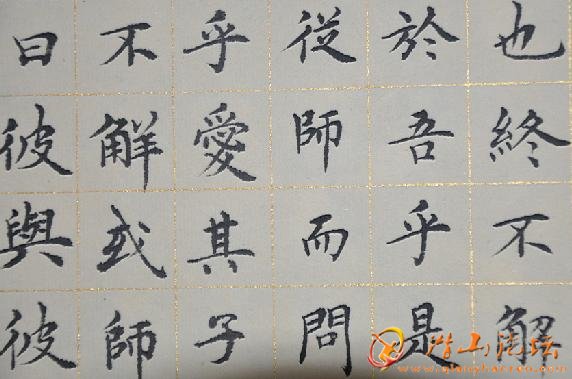 也終不解
於吾乎是
從師而問
乎愛其子
不解或師
曰彼與彼